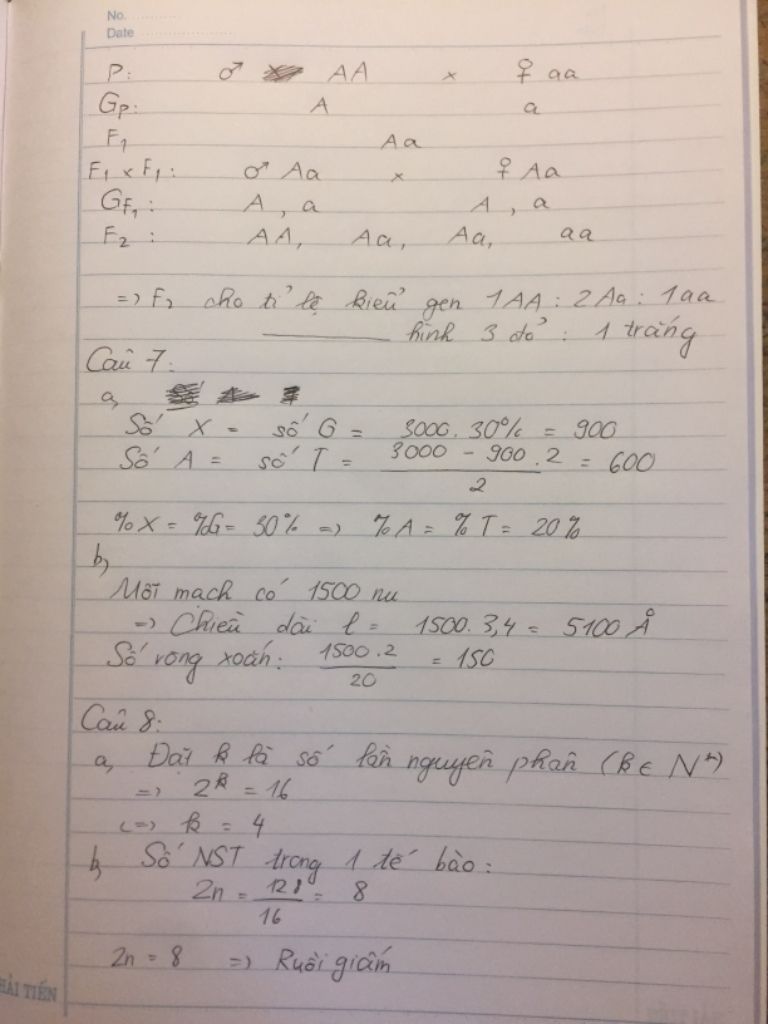 No.
Date
P: ♂ AA x ♀ aa
GP: A a
F1 Aa
F1 x F1: ♂ Aa x ♀ Aa
GF1: A, a A, a
F2: AA, Aa, Aa, aa
=> F2 cho tỉ lệ kiểu gen 1AA : 2Aa : 1aa
hình 3 đỏ : 1 trắng
Câu 7:
a,
Số X = số G = 3000. 30% = 900
Số A = số T = (3000 - 900.2)/2 = 600
%X = %G = 30% => %A = %T = 20%
b,
Mỗi mạch có 1500 nu
=> Chiều dài l = 1500. 3,4 = 5100 Å
Số vòng xoắn: (1500.2)/20 = 150
Câu 8:
a, Đặt k là số lần nguyên phân (k ∈ N*)
=> 2^k = 16
<=> k = 4
b, Số NST trong 1 tế bào:
2n = 128/16 = 8
2n = 8 => Ruồi giấm
HẢI TIẾN